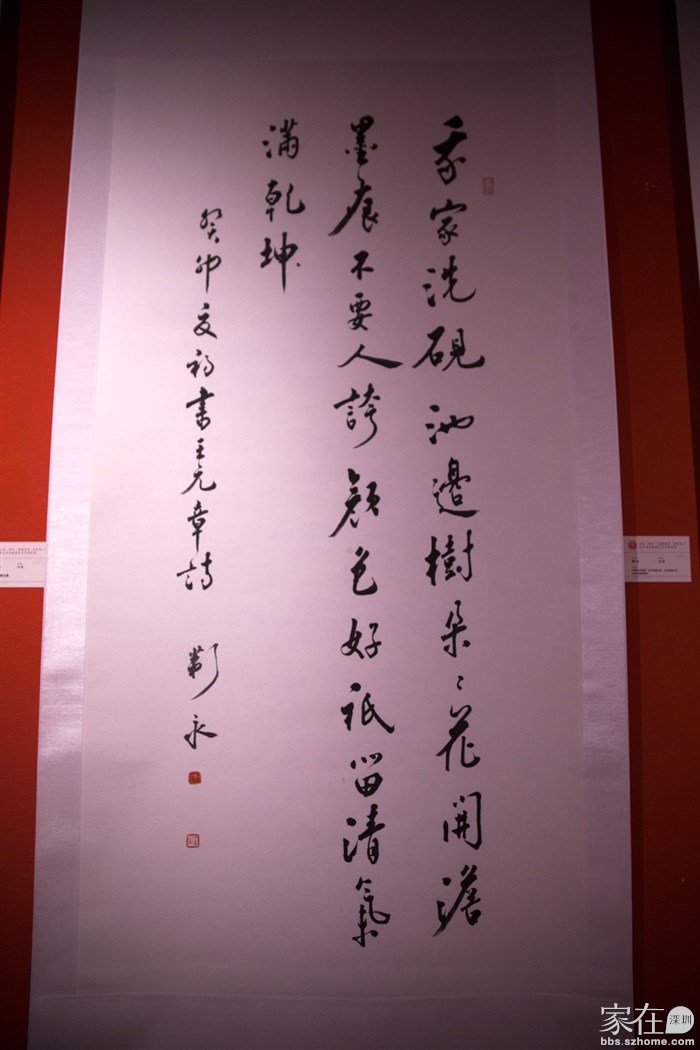 我家洗硯池邊樹朵〻花開澹
墨痕不要人誇顏色好祇留清氣
滿乾坤
癸卯夏初書王元章詩 永
家在深圳
bbs.szhome.com